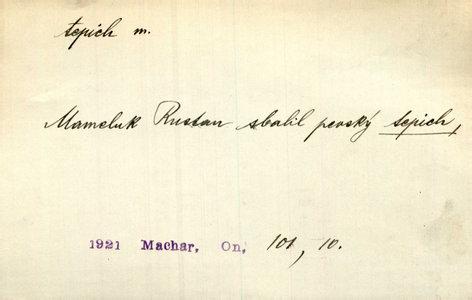 tepich m.
Mameluk Rustan sbalil perský tepich,
1921 Machar, On, 101, 10.